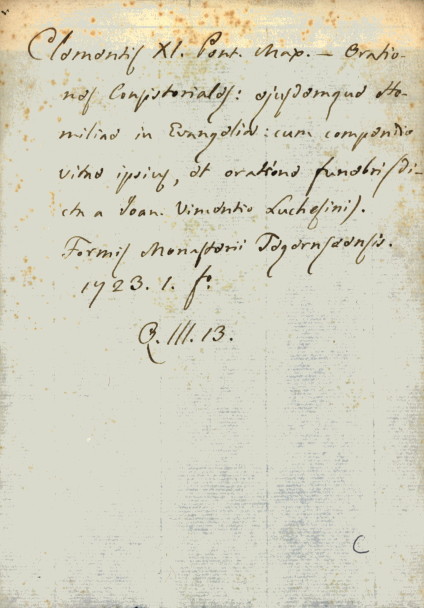 Clementis XI. Pont. Max. — Oratio-
nes Consistoriales: ejusdemque Ho-
miliae in Evangelia: cum compendio
vitae ipsius, et oratione funebri di-
cta a Joan. Vincentio Luchesinis.
Formis Monasterii Tegernseensis.
1723. 1. f°.
Q. III. 13.
C